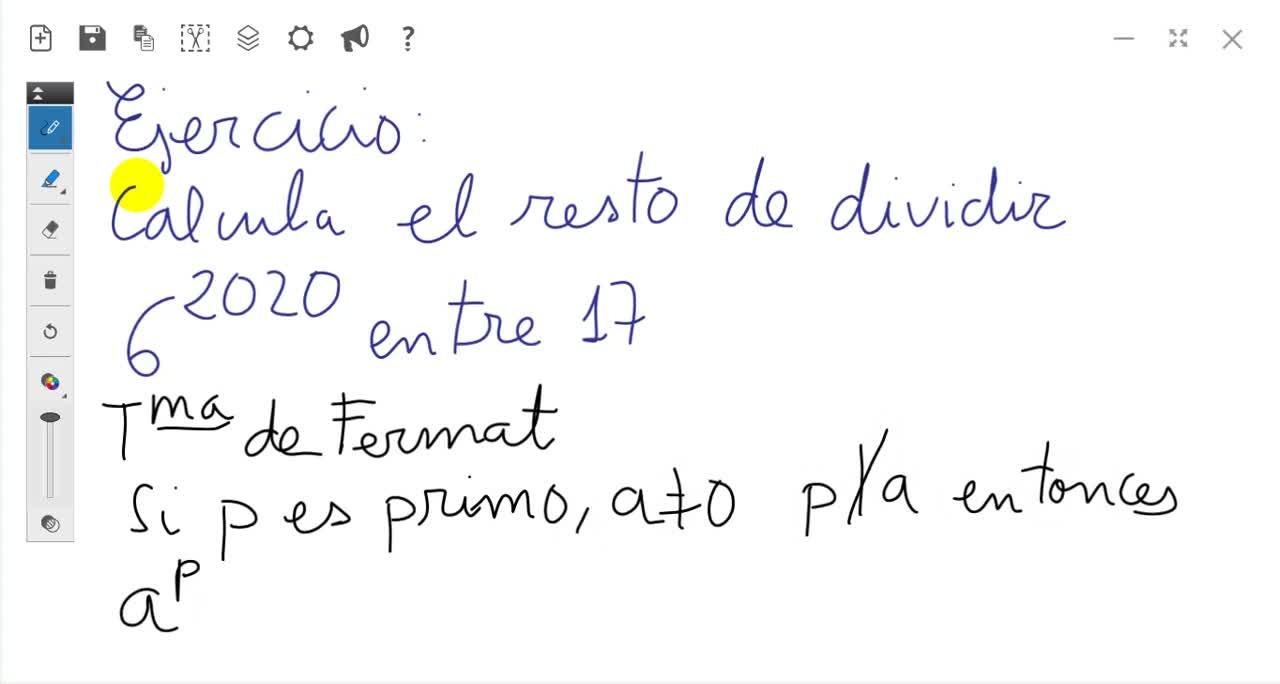 Ejercicio:
Calcula el resto de dividir
6^2020 entre 17
T^ma de Fermat
Si p es primo, a≠0 p∤a entonces
a^p